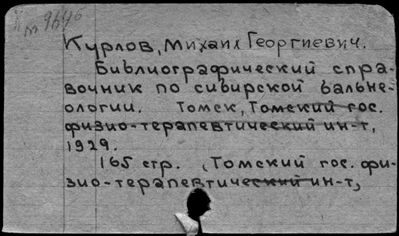 m 9646
Курлов, Михаил Георгиевич.
Библиографический спра-
вочник по сибирской бальне-
ологии. Томск, Томский гос.
физио-терапевтический ин-т,
1929.
165 стр. (Томский гос. фи-
зио-терапевтический ин-т,